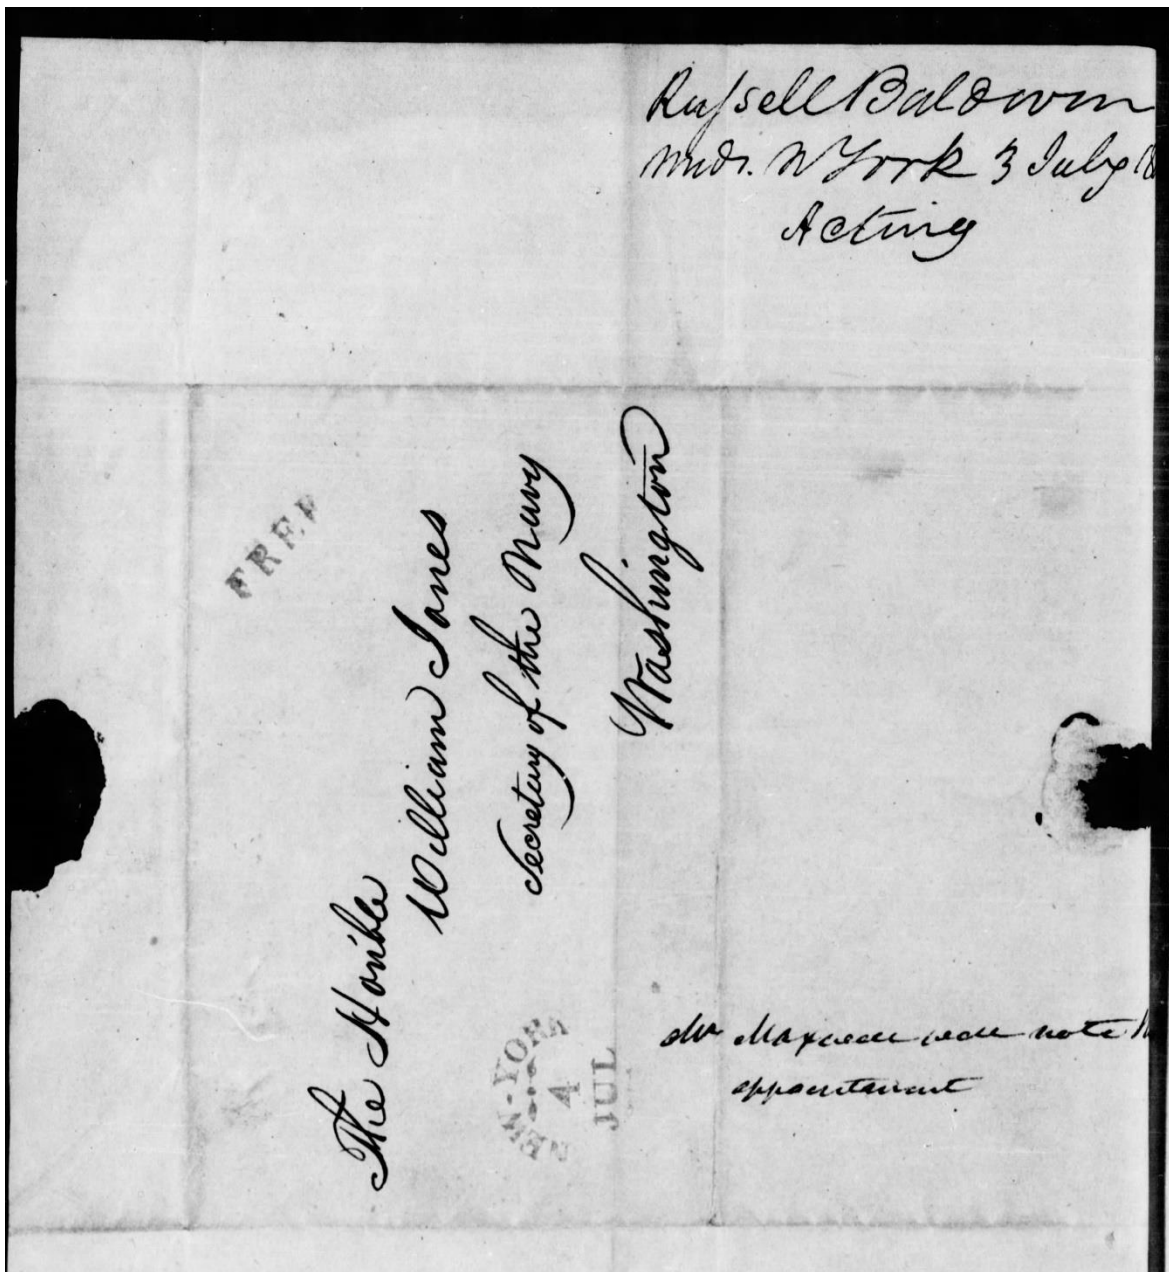 Russell Baldwin
Midn. N York 3 July 18
Acting
FREE
The Honble
William Jones
Secretary of the Navy
Washington
NEW-YORK
4
JUL
Mr Maxwell will note
appointment